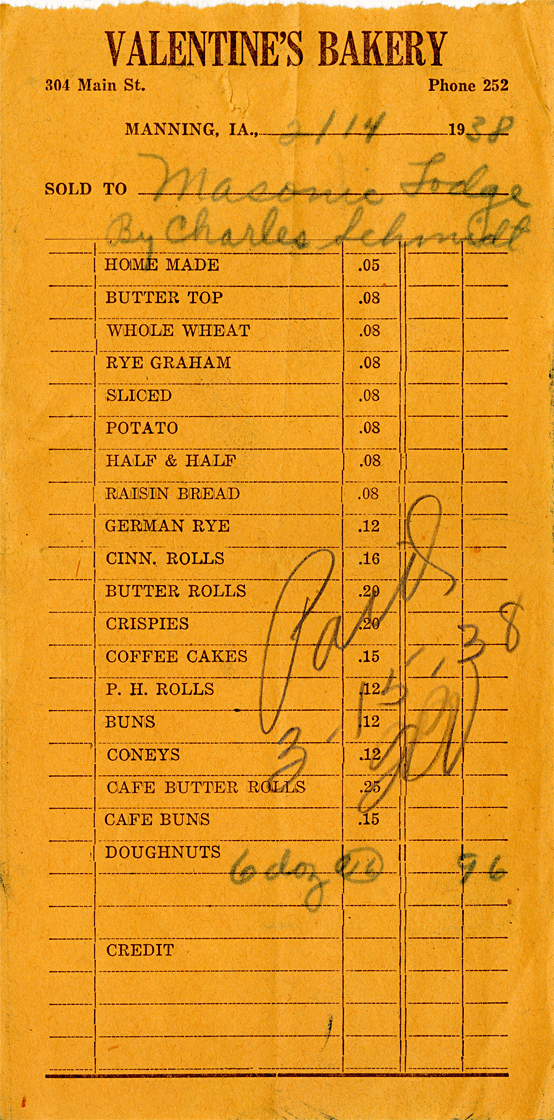 VALENTINE'S BAKERY
304 Main St. Phone 252
MANNING, IA., 2/14 1938
SOLD TO Masonic Lodge
By Charles Schmidt
HOME MADE .05
BUTTER TOP .08
WHOLE WHEAT .08
RYE GRAHAM .08
SLICED .08
POTATO .08
HALF & HALF .08
RAISIN BREAD .08
GERMAN RYE .12
CINN. ROLLS .16
BUTTER ROLLS .20
CRISPIES .20
COFFEE CAKES .15
P. H. ROLLS .12
BUNS .12
CONEYS .12
CAFE BUTTER ROLLS .25
CAFE BUNS .15
DOUGHNUTS
6 doz @16 96
CREDIT
Paid
3.15.38